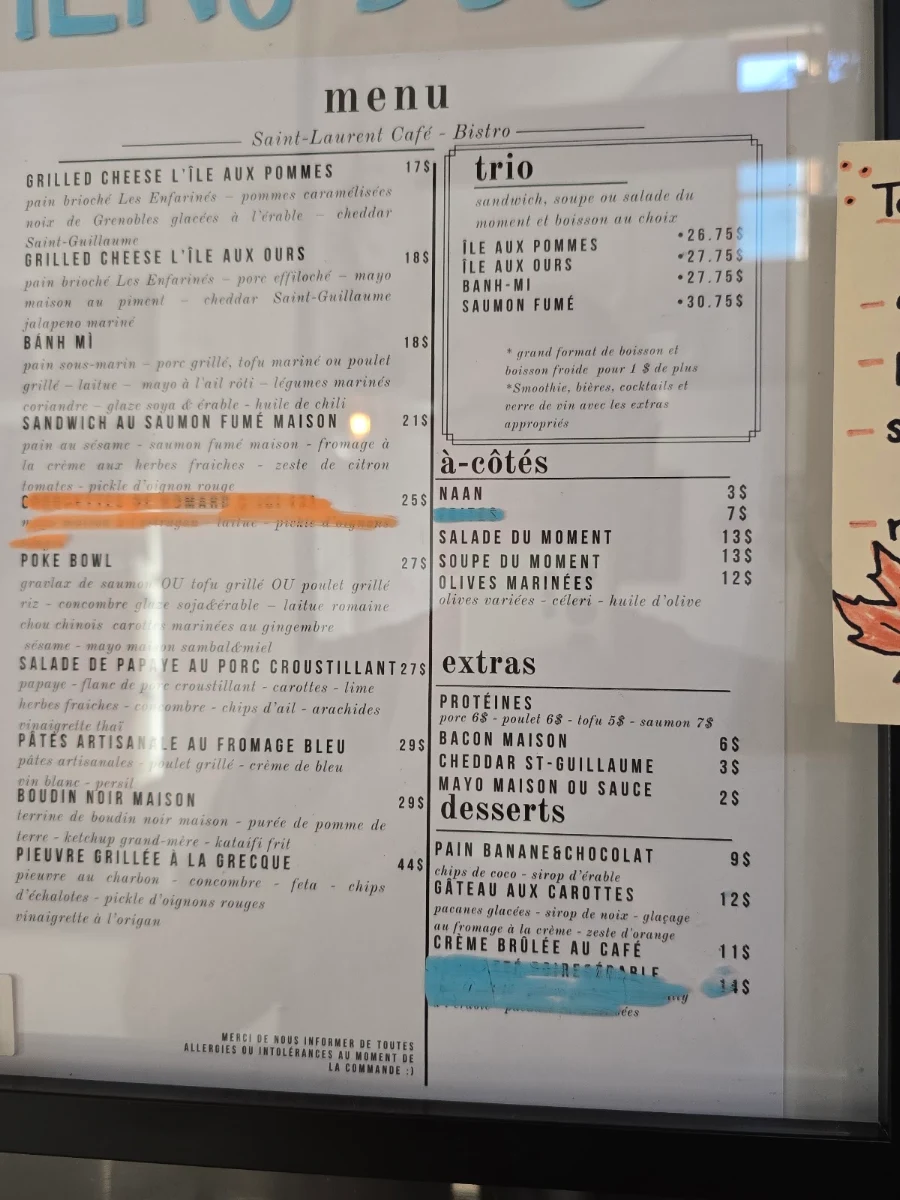 menu
Saint-Laurent Café - Bistro
GRILLED CHEESE L'ÎLE AUX POMMES 17$
pain brioché Les Enfarinés – pommes caramélisées
noix de Grenobles glacées à l'érable – cheddar
Saint-Guillaume
GRILLED CHEESE L'ÎLE AUX OURS 18$
pain brioché Les Enfarinés – porc effiloché – mayo
maison au piment – cheddar Saint-Guillaume
jalapeno mariné
BÁNH MÌ 18$
pain sous-marin – porc grillé, tofu mariné ou poulet
grillé – laitue – mayo à l'ail rôti – légumes marinés
coriandre – glaze soya & érable - huile de chili
SANDWICH AU SAUMON FUMÉ MAISON 21$
pain au sésame - saumon fumé maison - fromage à
la crème aux herbes fraiches - zeste de citron
tomates - pickle d'oignon rouge
25$
laitue - pickle d'oignons
POKE BOWL 27$
gravlax de saumon OU tofu grillé OU poulet grillé
riz - concombre glaze soja&érable – laitue romaine
chou chinois carottes marinées au gingembre
sésame - mayo maison sambal&miel
SALADE DE PAPAYE AU PORC CROUSTILLANT 27$
papaye - flanc de porc croustillant - carottes - lime
herbes fraiches - concombre - chips d'ail - arachides
vinaigrette thaï
PÂTES ARTISANALE AU FROMAGE BLEU 29$
pâtes artisanales - poulet grillé - crème de bleu
vin blanc - persil
BOUDIN NOIR MAISON 29$
terrine de boudin noir maison - purée de pomme de
terre - ketchup grand-mère - kataifi frit
PIEUVRE GRILLÉE À LA GRECQUE 44$
pieuvre au charbon - concombre - feta - chips
d'échalotes - pickle d'oignons rouges
vinaigrette à l'origan
MERCI DE NOUS INFORMER DE TOUTES
ALLERGIES OU INTOLÉRANCES AU MOMENT DE
LA COMMANDE :)
trio
sandwich, soupe ou salade du
moment et boisson au choix
ÎLE AUX POMMES •26.75$
ÎLE AUX OURS •27.75$
BANH-MI •27.75$
SAUMON FUMÉ •30.75$
* grand format de boisson et
boisson froide pour 1 $ de plus
*Smoothie, bières, cocktails et
verre de vin avec les extras
appropriés
à-côtés
NAAN 3$
7$
SALADE DU MOMENT 13$
SOUPE DU MOMENT 13$
OLIVES MARINÉES 12$
olives variées - céleri - huile d'olive
extras
PROTÉINES
porc 6$ - poulet 6$ - tofu 5$ - saumon 7$
BACON MAISON 6$
CHEDDAR ST-GUILLAUME 3$
MAYO MAISON OU SAUCE 2$
desserts
PAIN BANANE&CHOCOLAT 9$
chips de coco - sirop d'érable
GÂTEAU AUX CAROTTES 12$
pacanes glacées - sirop de noix - glaçage
au fromage à la crème - zeste d'orange
CRÈME BRÛLÉE AU CAFÉ 11$
14$